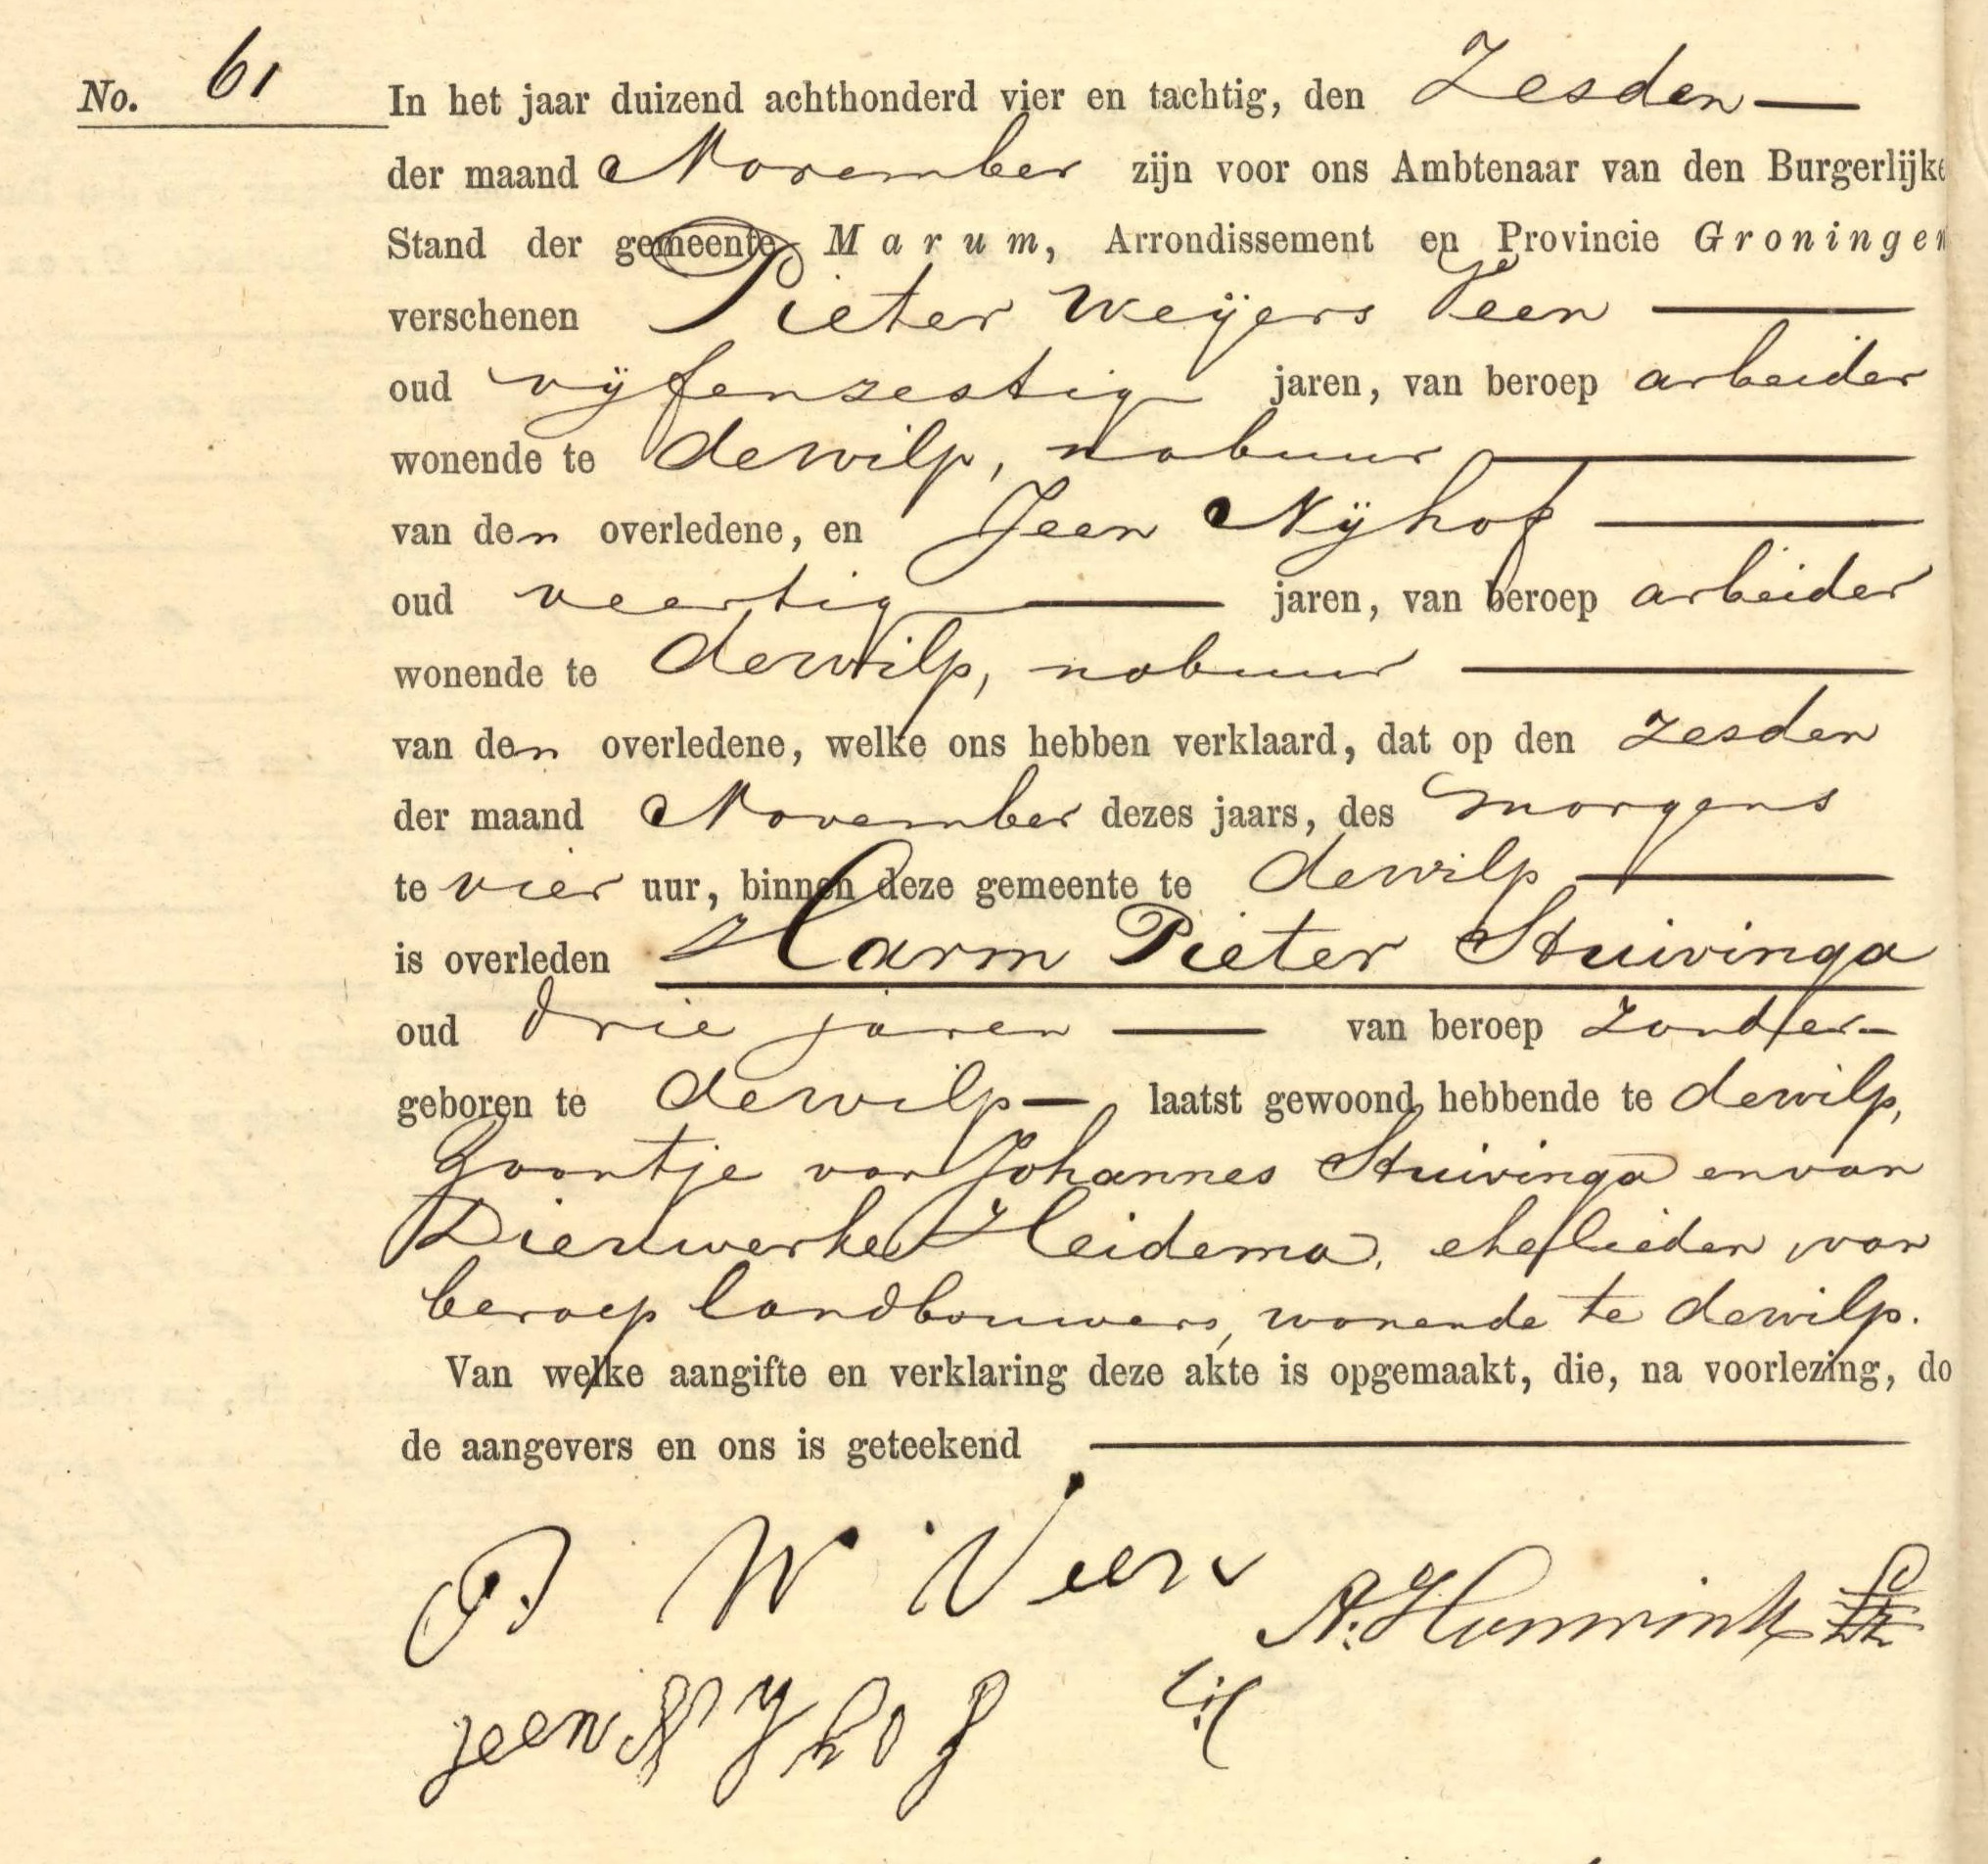 No. 61 In het jaar duizend achthonderd vier en tachtig, den Zesden
der maand November zijn voor ons Ambtenaar van den Burgerlijke
Stand der gemeente Marum, Arrondissement en Provincie Groningen
verschenen Pieter Weijers Veen
oud vijfenzestig jaren, van beroep arbeider
wonende te dewilp, nabuur
van den overledene, en Jeen Nijhof
oud veertig jaren, van beroep arbeider
wonende te dewilp, nabuur
van den overledene, welke ons hebben verklaard, dat op den zesden
der maand November dezes jaars, des morgens
te vier uur, binnen deze gemeente te dewilp
is overleden Harm Pieter Stuivinga
oud drie jaren van beroep zonder
geboren te dewilp laatst gewoond hebbende te dewilp,
Zoontje van Johannes Stuivinga en van
Dieuwerke Heidema, echelieden, van
beroep landbouwers, wonende te dewilp.
Van welke aangifte en verklaring deze akte is opgemaakt, die, na voorlezing, do
de aangevers en ons is geteekend
P W Veen
jeen NYhof